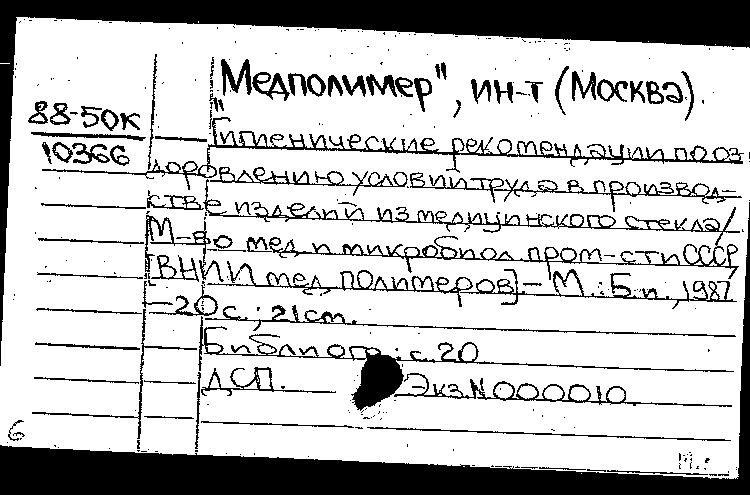 "Медполимер", ин-т (Москва).
88-50к
10366
Гигиенические рекомендации по оз
доровлению условий труда в производ-
стве изделий из медицинского стекла/
М-во мед. и микробиол. пром-сти СССР,
[ВНИИ мед. полимеров]-М.: Б.и., 1987
-20 с.; 21 cm.
Библиогр.: с. 20
ДСП. Экз. N 000010.
6
М.: